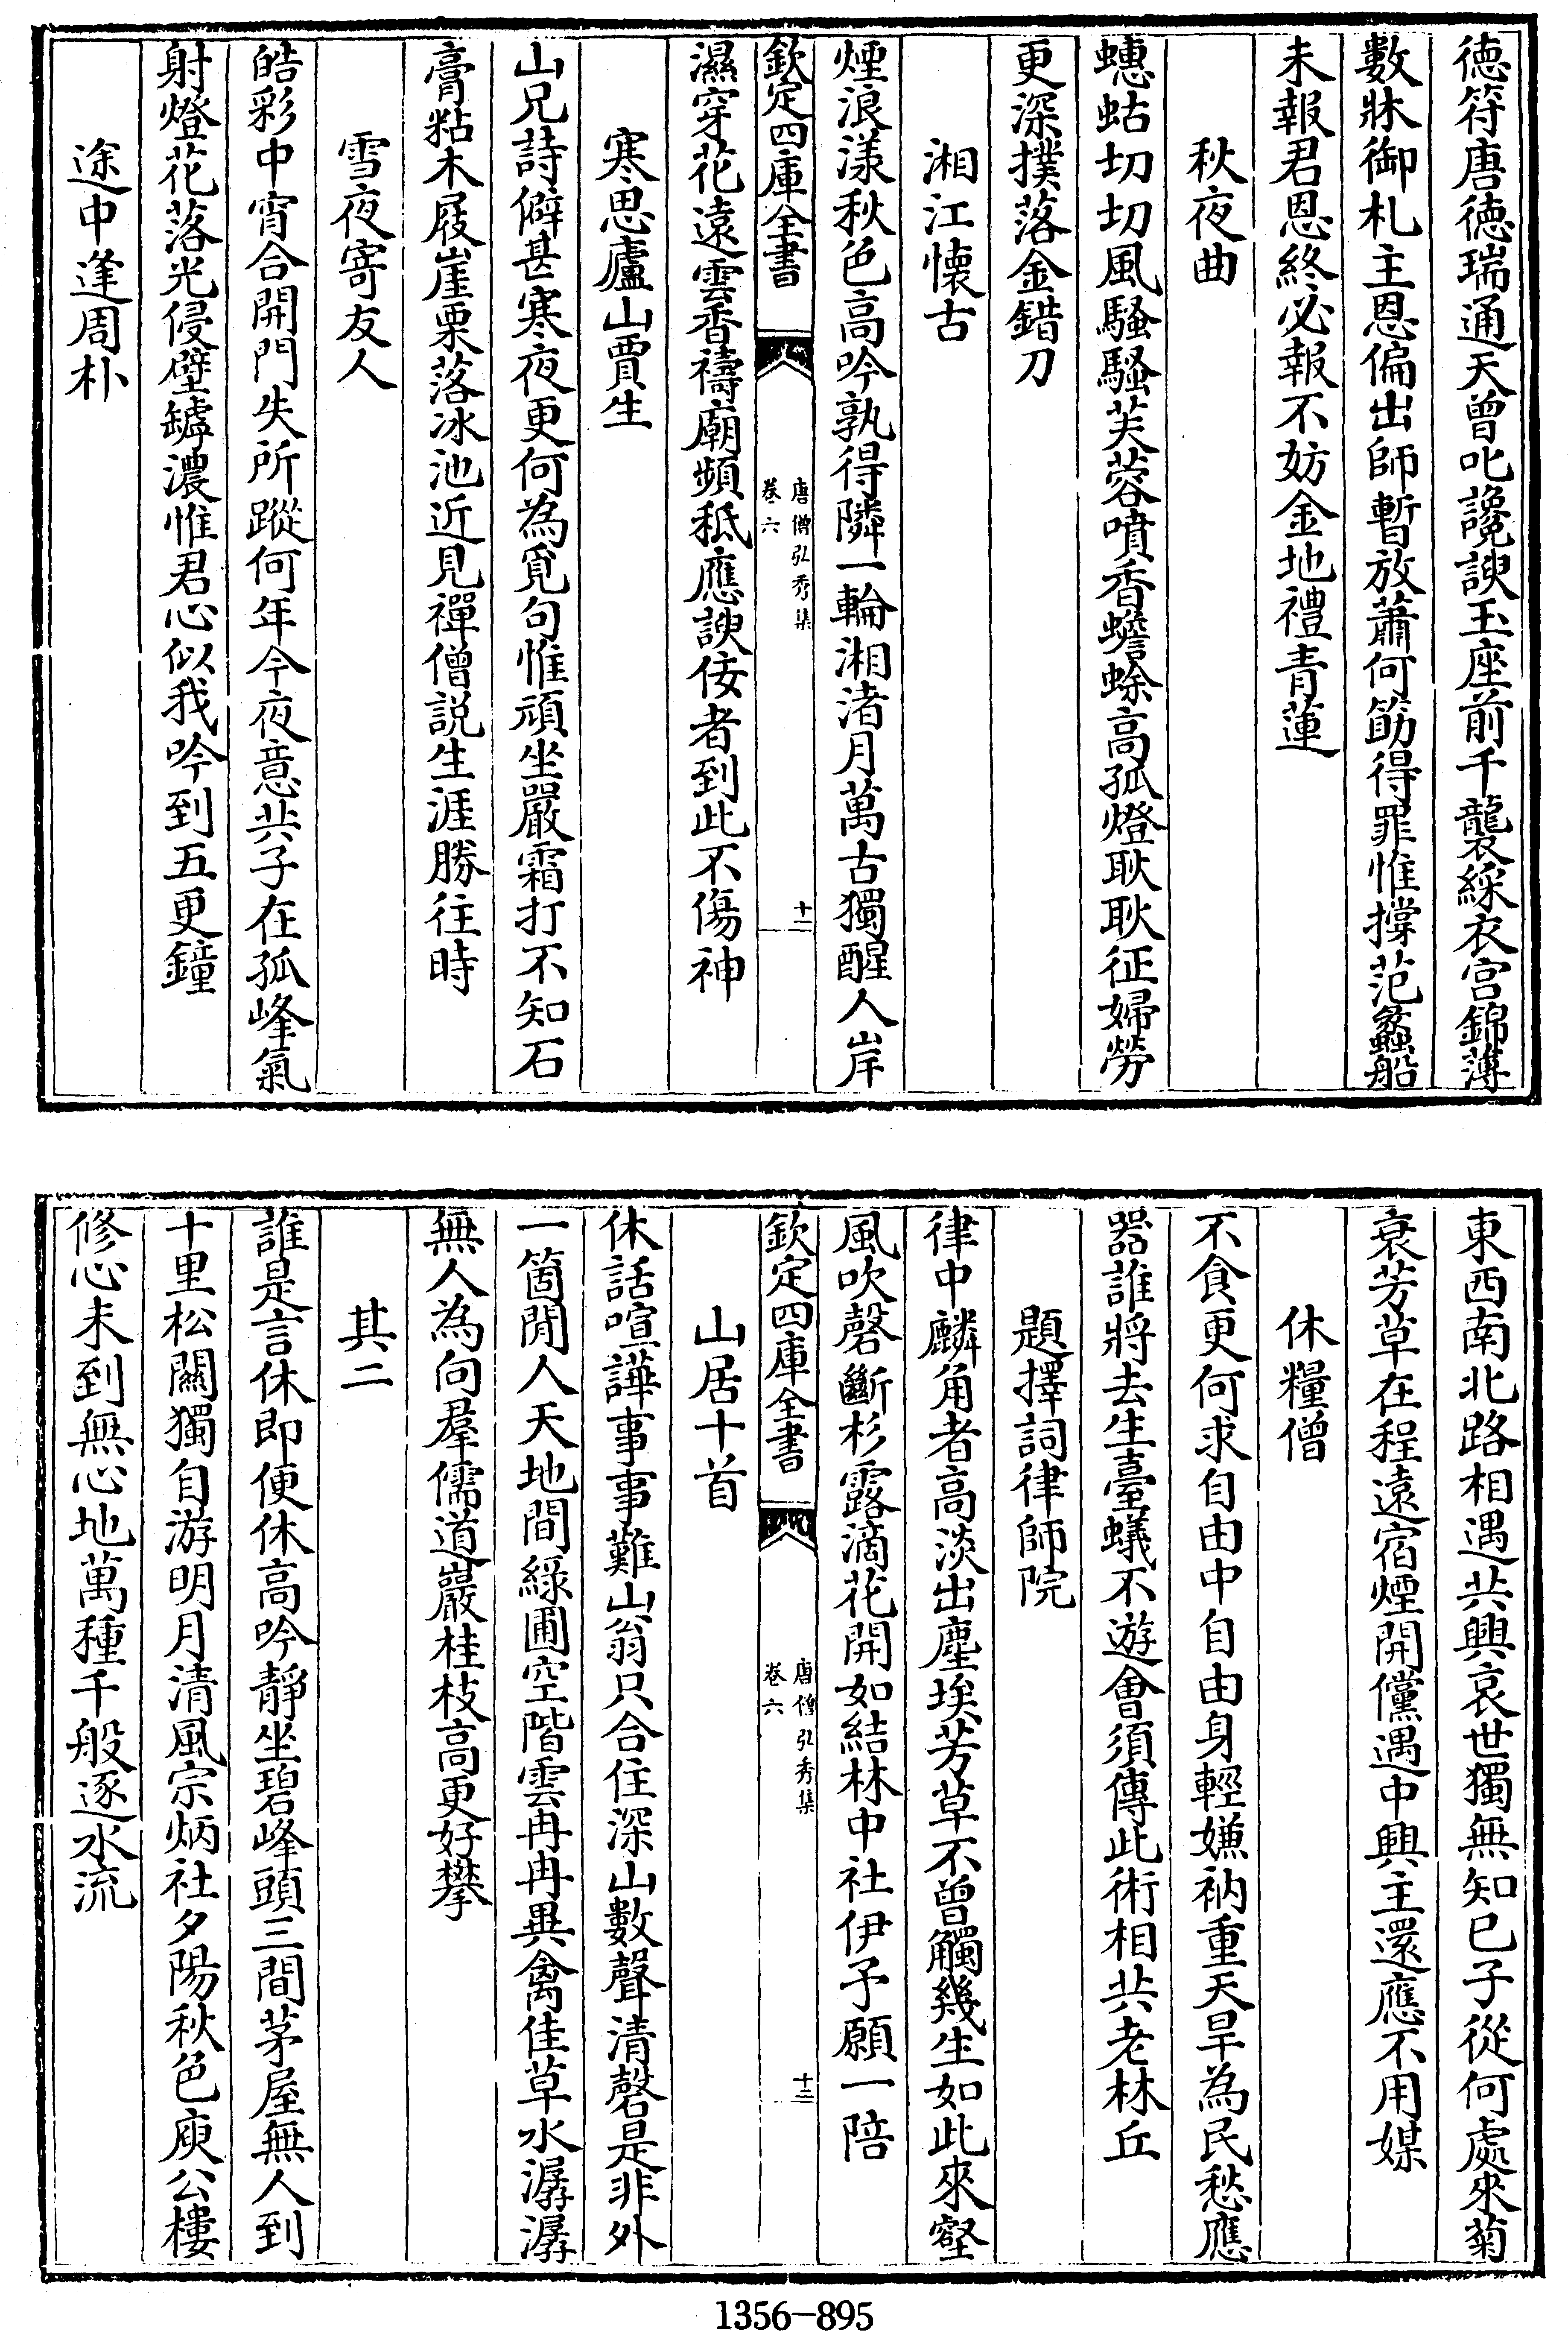 德符唐德瑞通天曾叱讒諛玉座前千襲綵衣宮錦薄
數牀御札主恩偏出師暫放蕭何笏得罪惟撐范蠡船
未報君恩終必報不妨金地禮青蓮
秋夜曲
蟪蛄切切風騷騷芙蓉噴香蟾蜍高孤燈耿耿征婦勞
更深撲落金錯刀
湘江懷古
煙浪漾秋色高吟孰得隣一輪湘渚月萬古獨醒人岸
欽定四庫全書
唐僧弘秀集
卷六
十一
濕穿花遠雲香禱廟頻秪應諛佞者到此不傷神
寒思廬山賈生
山兄詩僻甚寒夜更何為覓句惟頑坐嚴霜打不知石
膏粘木屐崖栗落冰池近見禪僧説生涯勝往時
雪夜寄友人
皓彩中宵合開門失所蹤何年今夜意共子在孤峰氣
射燈花落光侵壁罅濃惟君心似我吟到五更鐘
途中逢周朴
東西南北路相遇共興哀世獨無知已子從何處來菊
衰芳草在程遠宿煙開儻遇中興主還應不用媒
休糧僧
不食更何求自由中自由身輕嫌衲重天旱為民愁應
器誰將去生臺蟻不遊會須傳此術相共老林丘
題擇詞律師院
律中麟角者高淡出塵埃芳草不曾觸幾生如此來壑
風吹磬斷杉露滴花開如結林中社伊予願一陪
欽定四庫全書
唐僧弘秀集
卷六
十二
山居十首
休話喧譁事事難山翁只合住深山數聲清磬是非外
一箇閒人天地間綠圃空階雲冉冉異禽佳草水潺潺
無人為向羣儒道巖桂枝高更好攀
其二
誰是言休即便休高吟靜坐碧峰頭三間茅屋無人到
十里松關獨自游明月清風宗炳社夕陽秋色庾公樓
修心未到無心地萬種千般逐水流
1356-895